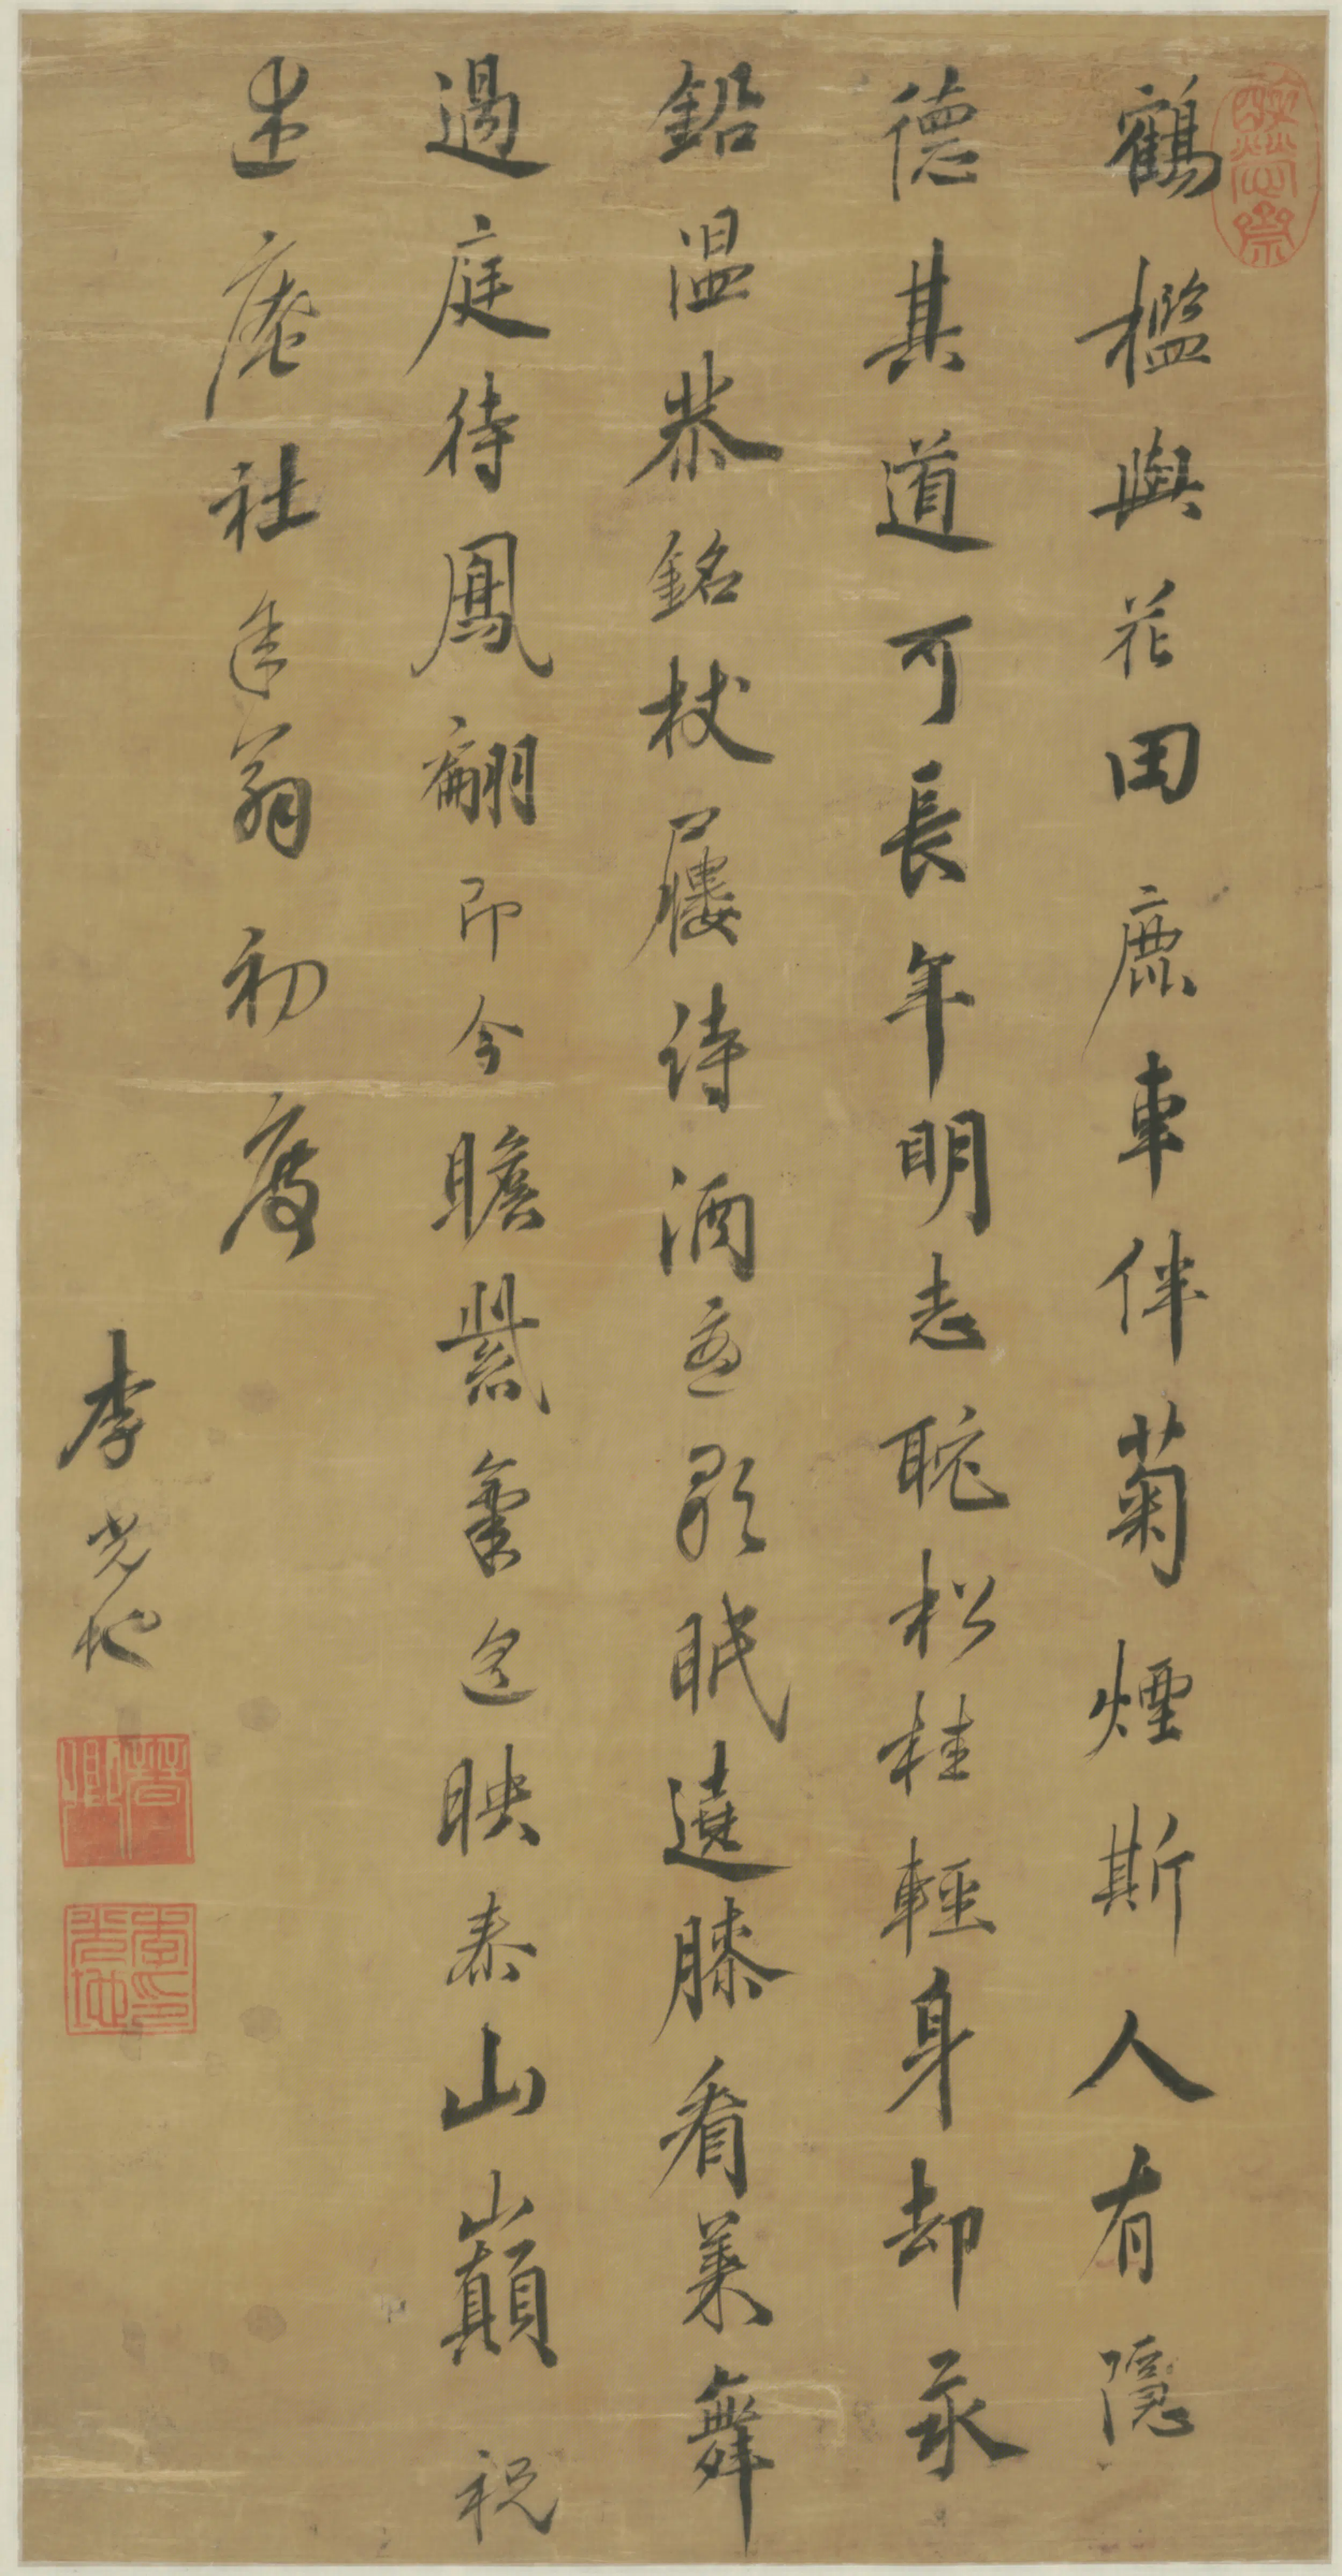 鶴檻與花田鹿車伴菊煙斯人有隱
德其道可長年明志耽松桂輕身却汞
鉛温恭銘杖屨詩酒意歌眠遶膝看萊舞
過庭待鳳翩即今瞻紫氣迢映泰山巔祝
老庵社年翁初度
李光地
晉卿
李光地印